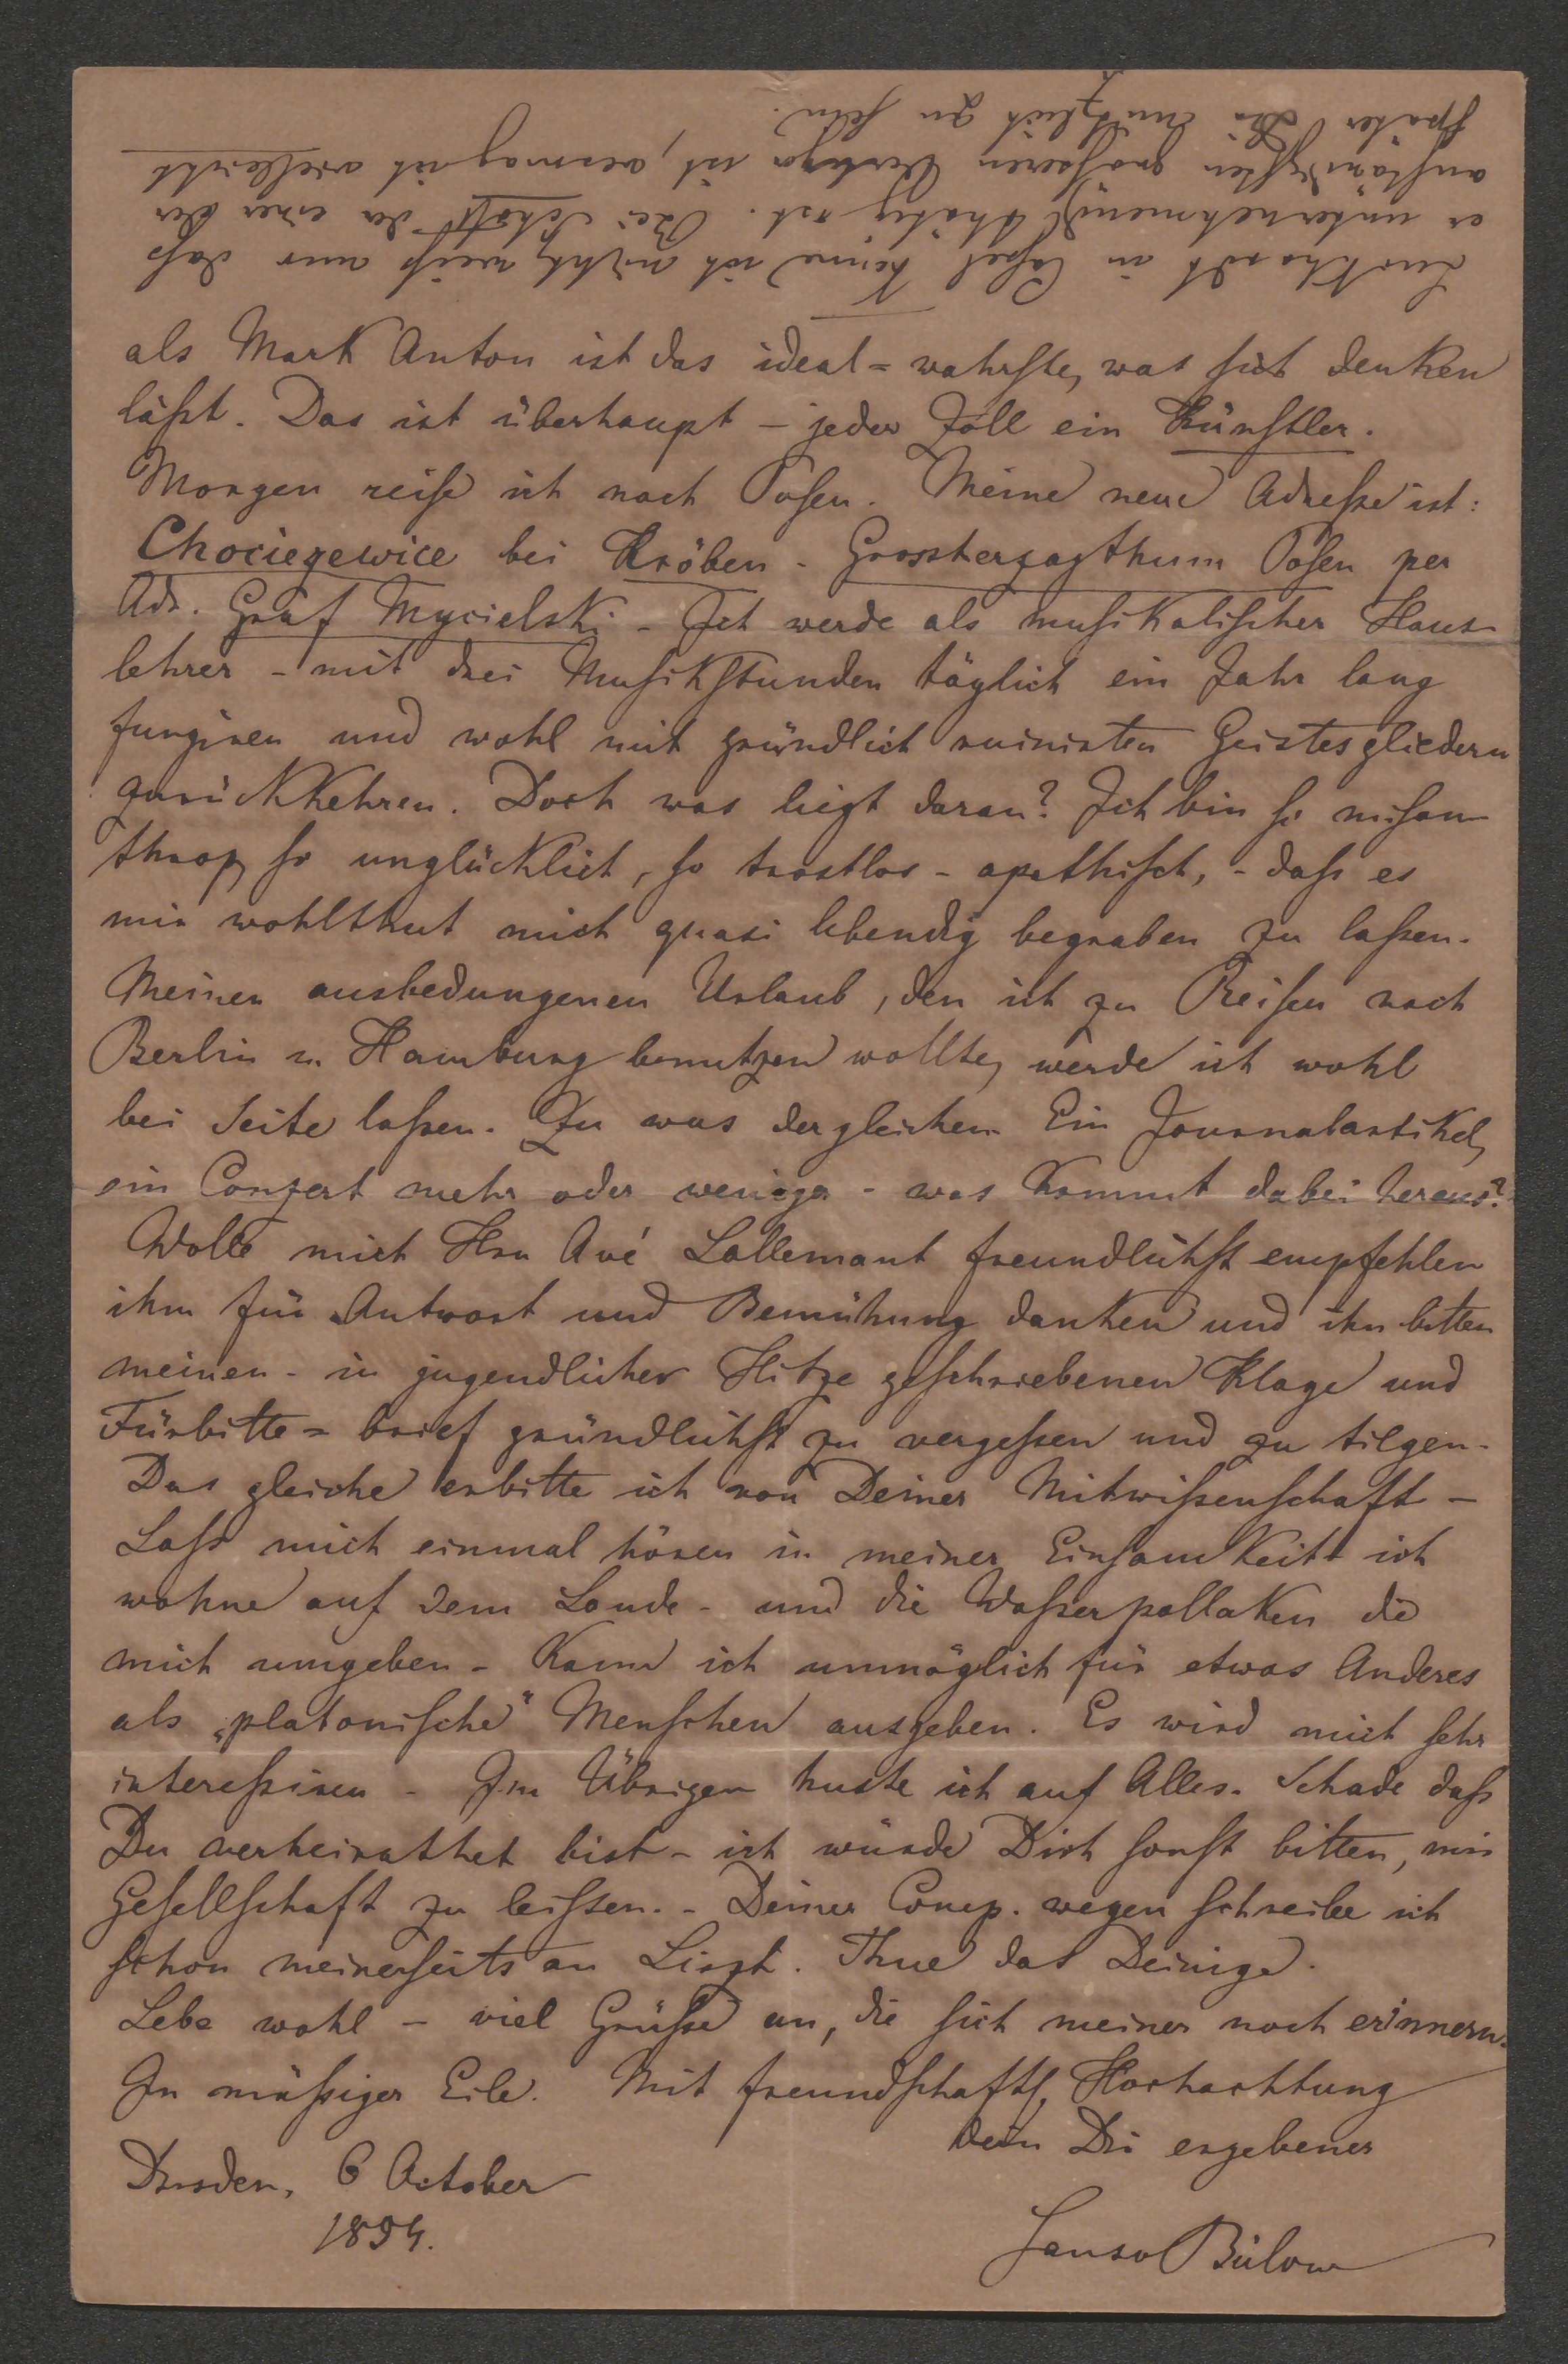 als Mark Anton ist das ideal=wahrste, was sich denken
läßt. Das ist überhaupt – jeder Zoll ein Künstler.
Morgen reise ich nach Posen. Meine neue Adresse ist:
Chociegewice bei Kröben – Grossherzogthum Posen per
Adr. Graf Mycielski – Ich werde als musikalischer Haus-
lehrer – mit drei Musikstunden täglich ein Jahr lang
fungiren und wohl mit gründlich ruinirten Geistesgliedern
zurückkehren. Doch was liegt daran? Ich bin so misan-
throp, so unglücklich, so trostlos – apathisch, – daß es
mir wohlthut mich quasi lebendig begraben zu laßen.
Meinen ausbedungenen Urlaub, den ich zu Reisen nach
Berlin u. Hamburg benutzen wollte, werde ich wohl
bei Seite laßen. Zu was dergleichen Ein Journalartikel,
ein Conzert mehr oder weniger – was kommt dabei heraus?
Wolle mich Hrn Avé Lallemant freundlichst empfehlen
ihm für Antwort und Bemühung danken und ihn bitten
meinen – in jugendlicher Hitze geschriebenen Klage und
Fürbitte=brief gründlichst zu vergeßen und zu tilgen.
Das gleiche erbitte ich von Deiner Mitwißenschaft –
Laß mich einmal hören in meiner Einsamkeit ich
wohne auf dem Lande – und die Waßerpollaken die
mich umgeben – kann ich unmöglich für etwas Anderes
als „platonische" Menschen ausgeben. Es wird mich sehr
intereßiren – Im Übrigen huste ich auf Alles. Schade daß
Du verheirathet bist – ich würde Dich sonst bitten, mir
Gesellschaft zu leisten. – Deiner Comp. wegen schreibe ich
schon meinerseits an Liszt. Thue das Deinige.
Lebe wohl – viel Grüße an, die sich meiner noch erinnern.
In mäßiger Eile. Mit freundschaftl. Hochachtung
Dein Dir ergebener
Dresden, 6 October
1854.
Bülow
Luckhardt in Caßel kenne ich nicht, weiß nur daß
er unternehmend thätig ist. Bei Schott der einer der
anständigsten größeren Verleger ist, vermag ich vielleicht
später Dir nützlich zu sein.